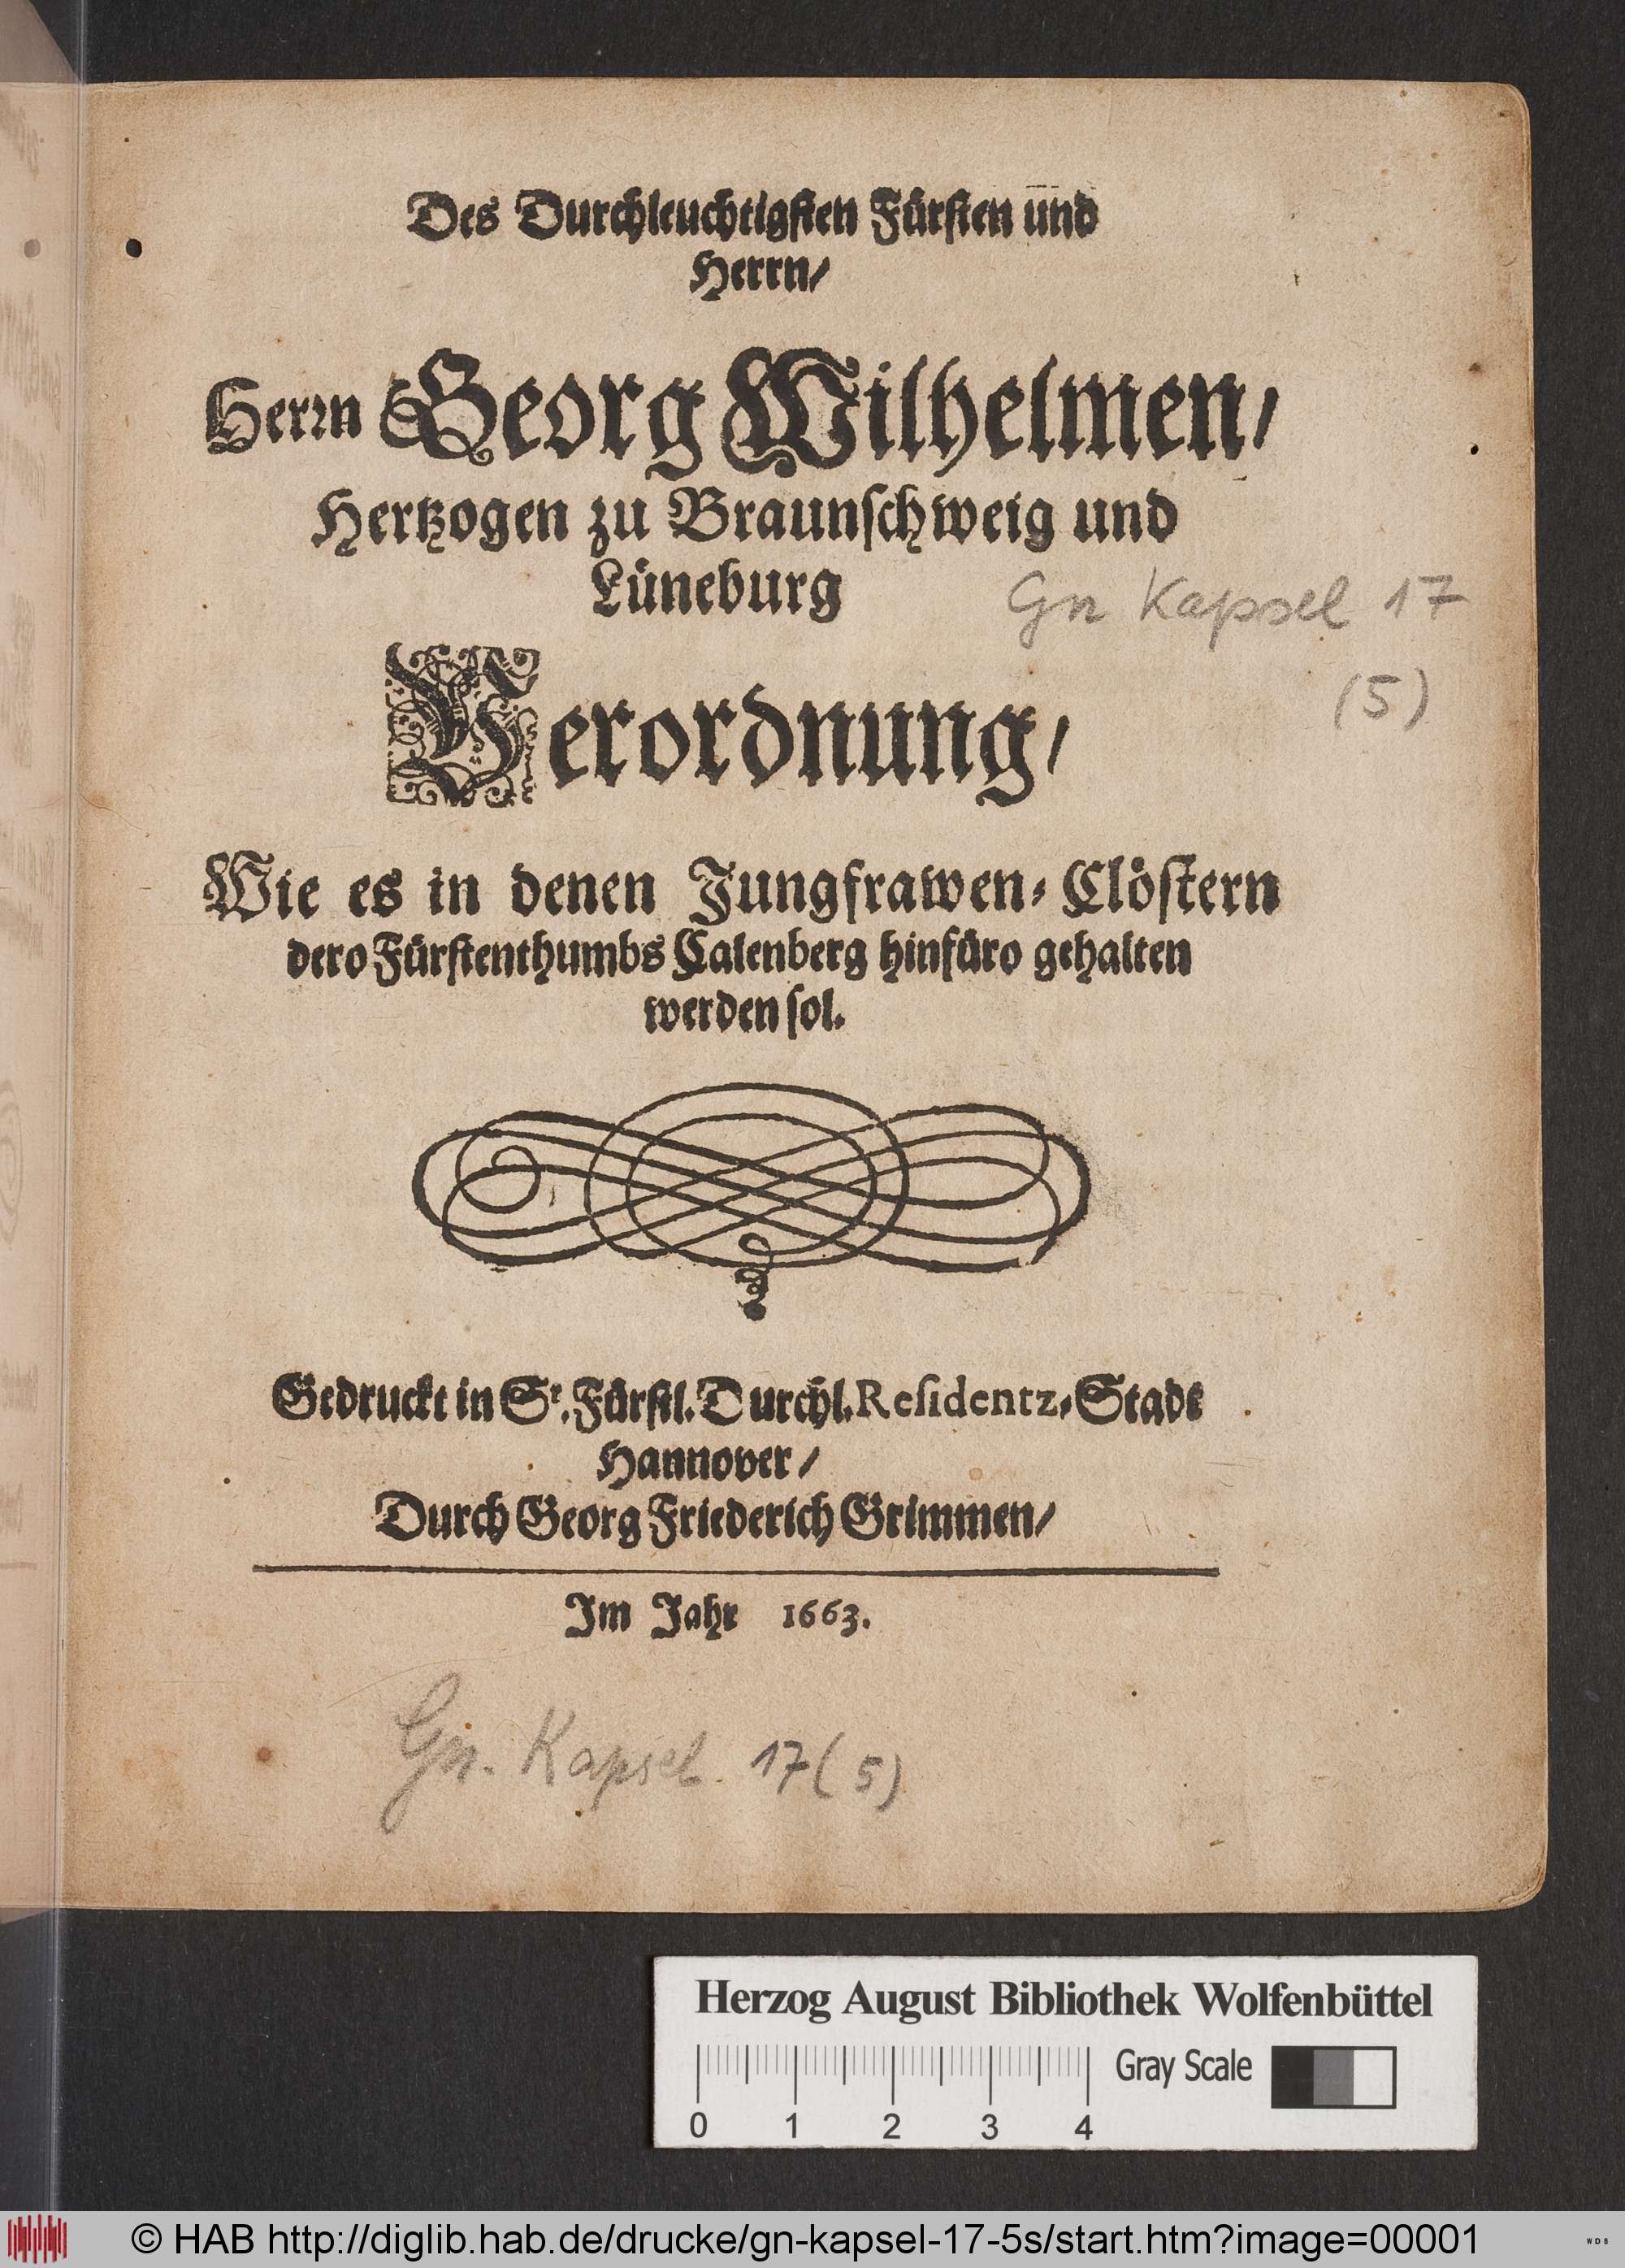 Des Durchleuchtigſten Fürſten und
Herrn/
Herrn Georg Wilhelmen/
Hertzogen zu Braunſchweig und
Lüneburg
Gn Kapsel 17
(5)
Verordnung/
Wie es in denen Jungfrawen-Clöſtern
dero Fürſtenthumbs Calenberg hinfüro gehalten
werden ſol.
Gedruckt in Sr. Fürſtl. Durchl. Reſidentz-Stadt
Hannover/
Durch Georg Friederich Grimmen/
Im Jahr 1663.
Gn. Kapsel. 17(5)
Herzog August Bibliothek Wolfenbüttel
Gray Scale
0 1 2 3 4
© HAB http://diglib.hab.de/drucke/gn-kapsel-17-5s/start.htm?image=00001
WDB